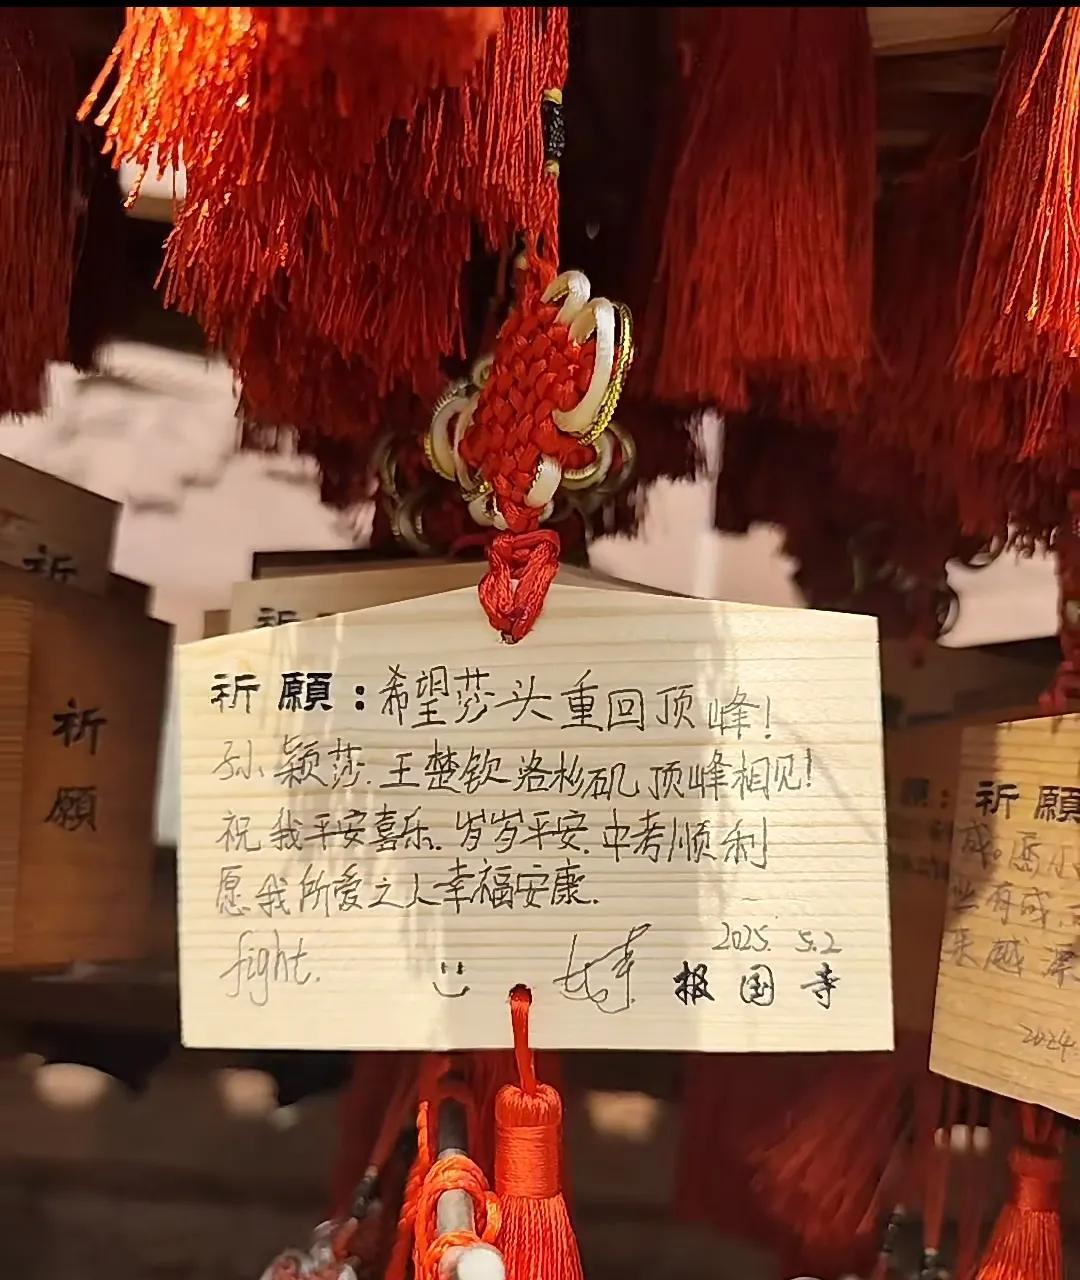 祈願：希望莎头重回顶峰！
孙颖莎.王楚钦洛杉矶顶峰相见！
祝我平安喜乐.岁岁平安.中考顺利
愿我所爱之人幸福安康.
2025. 5.2
fight.
报国寺
祈
祈
祈願
祈願
2024.